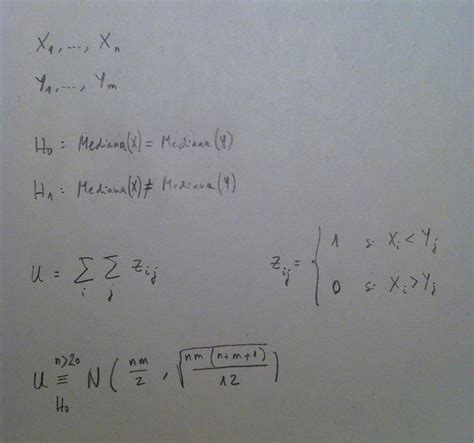 X₁, ..., Xₙ
Y₁, ..., Yₘ
H₀ : Mediana(X) = Mediana(Y)
H₁ : Mediana(X) ≠ Mediana(Y)
U = Σᵢ Σⱼ Zᵢⱼ    Zᵢⱼ = { 1 si Xᵢ < Yⱼ
0 si Xᵢ > Yⱼ
U ≡ (n>20, H₀) N( nm/2 , √(nm(n+m+1)/12) )